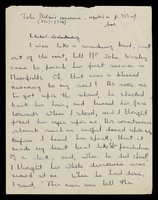 John Nelson's conversion - 
(1707-1774)
"I was like a wandering bird, cast
out of the nest, till Mr John Wesley
came to preach his first sermon in
Moorfields. Oh, that was a blessed
morning to my soul! As soon as
he got upon the stand, he stroked
back his hair and turned his face
towards where I stood, and I thought
fixed his eyes upon me. His countenance
struck such an awful dread upon me
before I heard him speak, that it
made my heart beat like the pendulum
of a clock; and, when he did speak
I thought his whole discourse was
aimed at me. When he had done,
I said, 'This man can tell the